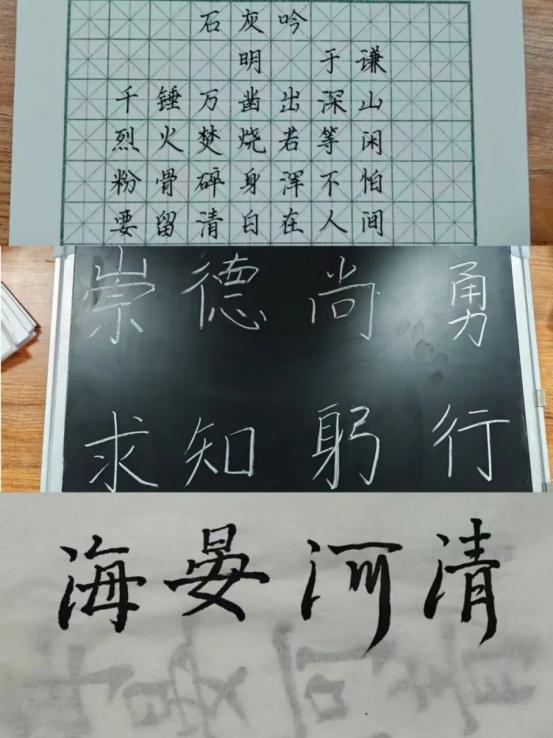 石灰吟
明 于谦
千锤万凿出深山
烈火焚烧若等闲
粉骨碎身浑不怕
要留清白在人间
崇德尚勇
求知躬行
海晏河清